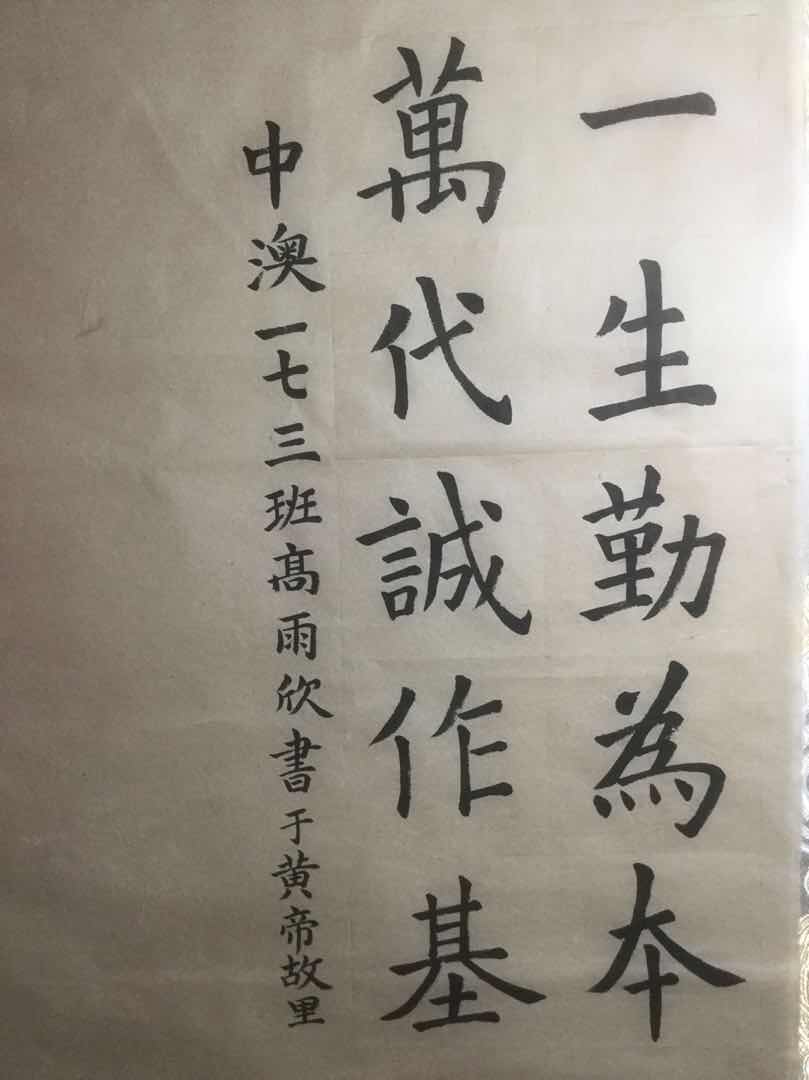 一生勤為本
萬代誠作基
中澳一七三班高雨欣書于黄帝故里